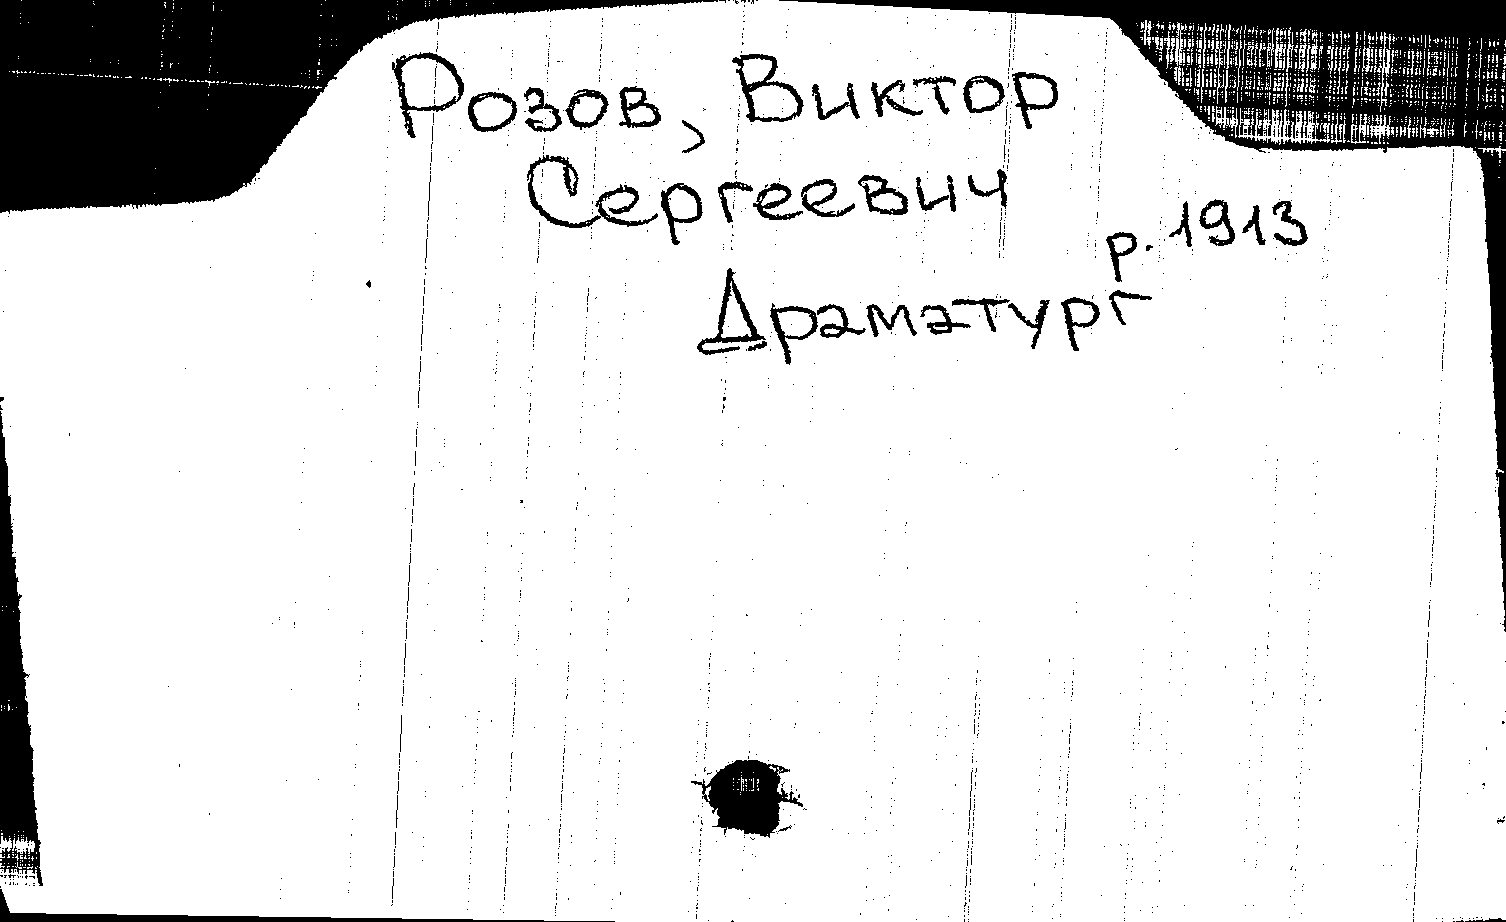 Розов, Виктор
Сергеевич
р. 1913
Драматург